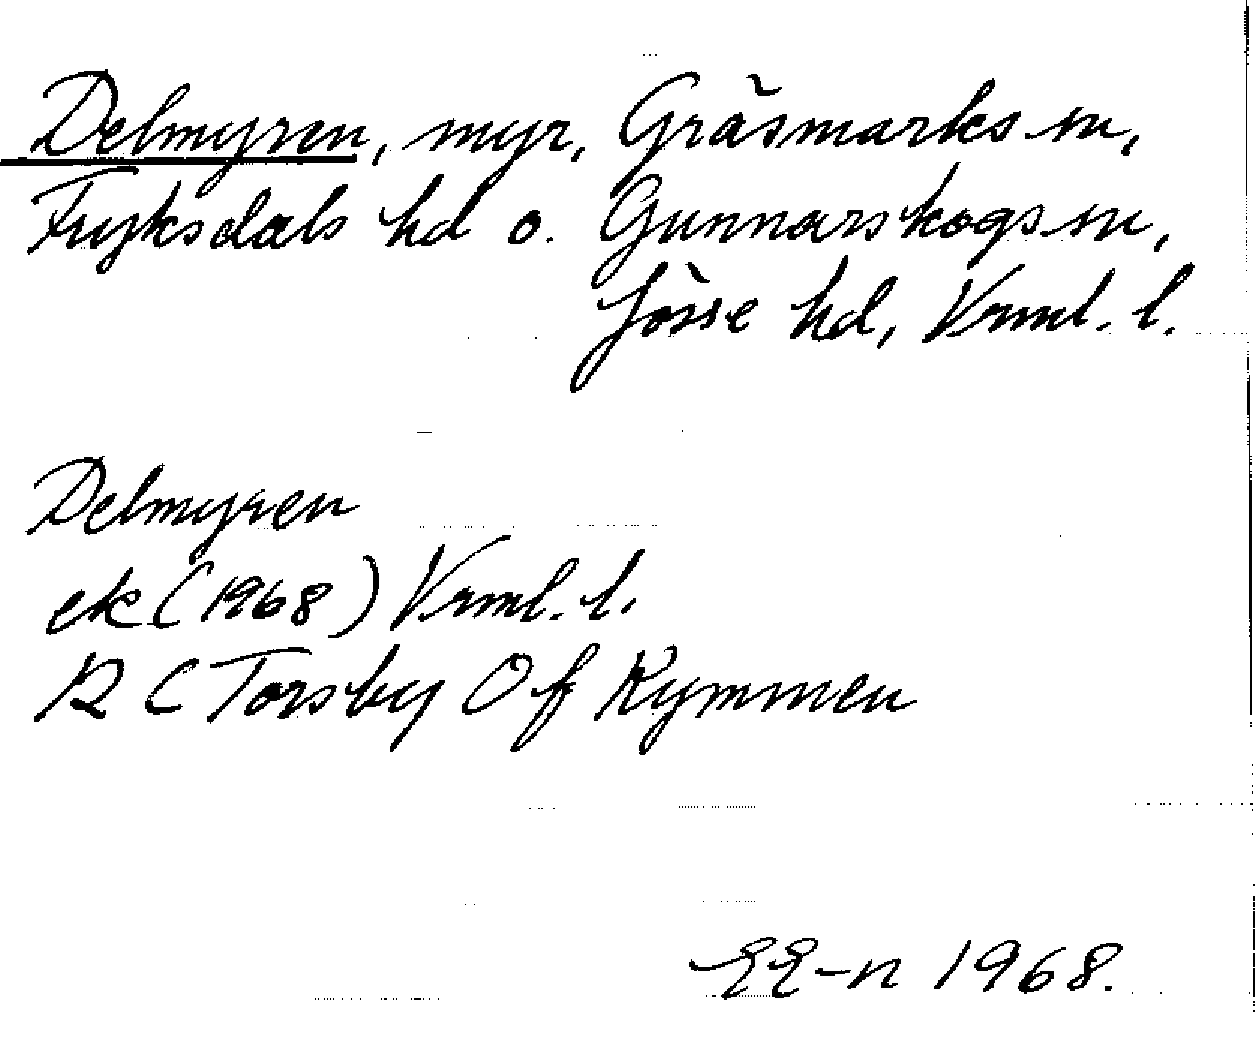 Delmyren, myr, Gräsmarks sn,
Fryksdals hd o. Gunnarskogs sn,
Jösse hd, Vrml. l.
Delmyren
ek (1968) Vrml. l.
12 C Torsby Of Kymmen
EE-n 1968.